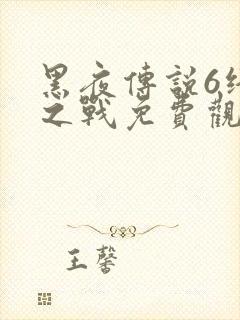 黑夜傳説6終
之戰免費觀
王馨